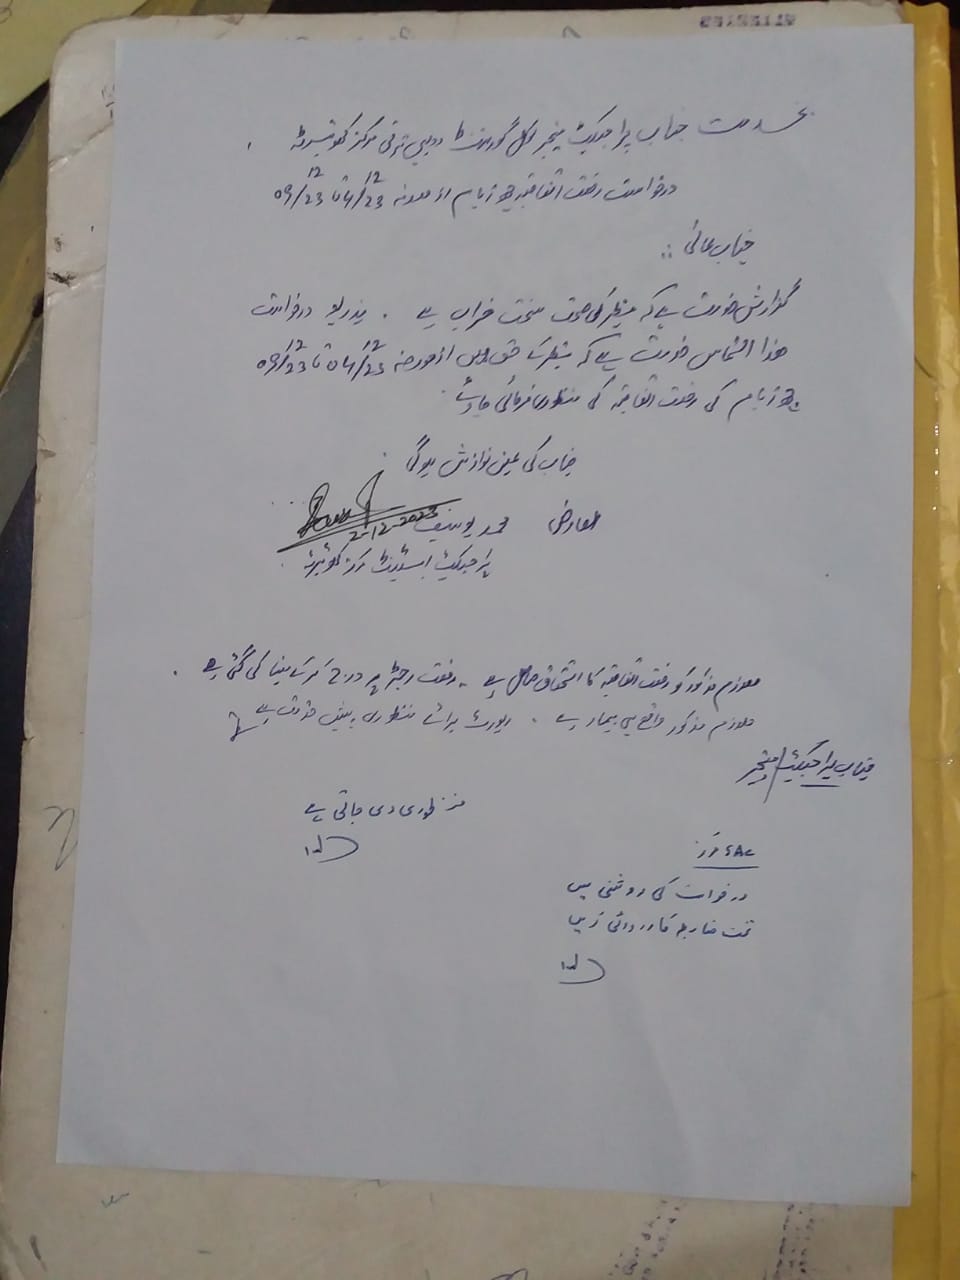 بخدمت جناب پراجیکٹ منیجر لوکل گورنمنٹ و دیہی ترقی مرکز کھوئیرٹہ
درخواست رخصت اتفاقیہ 6 ایام از مورخہ 04/12/23 تا 09/12/23
جناب عالی
گزارش خدمت ہے کہ مظہر کی صحت سخت خراب ہے ۔ بذریعہ درخواست
ھذا التماس خدمت ہے کہ مظہر کے حق میں از مورخہ 04/12/23 تا 09/12/23
ایام کی رخصت اتفاقیہ کی منظوری فرمائی جاوے
جناب کی عین نوازش ہوگی
العارض محمد یوسف 2-12-2023
پراجیکٹ اسسٹنٹ مرکز کھوئیرٹہ
ملازم مذکور کو رخصت اتفاقیہ کا استحقاق حاصل ہے ۔ رخصت رجسٹر پر درج کر کے منہا کی گئی ہے ۔
ملازم مذکور واقع ہی بیمار ہے ۔ رپورٹ برائے منظوری پیش خدمت ہے
جناب پراجیکٹ منیجر
منظوری دی جاتی ہے
مرکز
درخواست کی روشنی میں
تحت ضابطہ کارروائی کریں